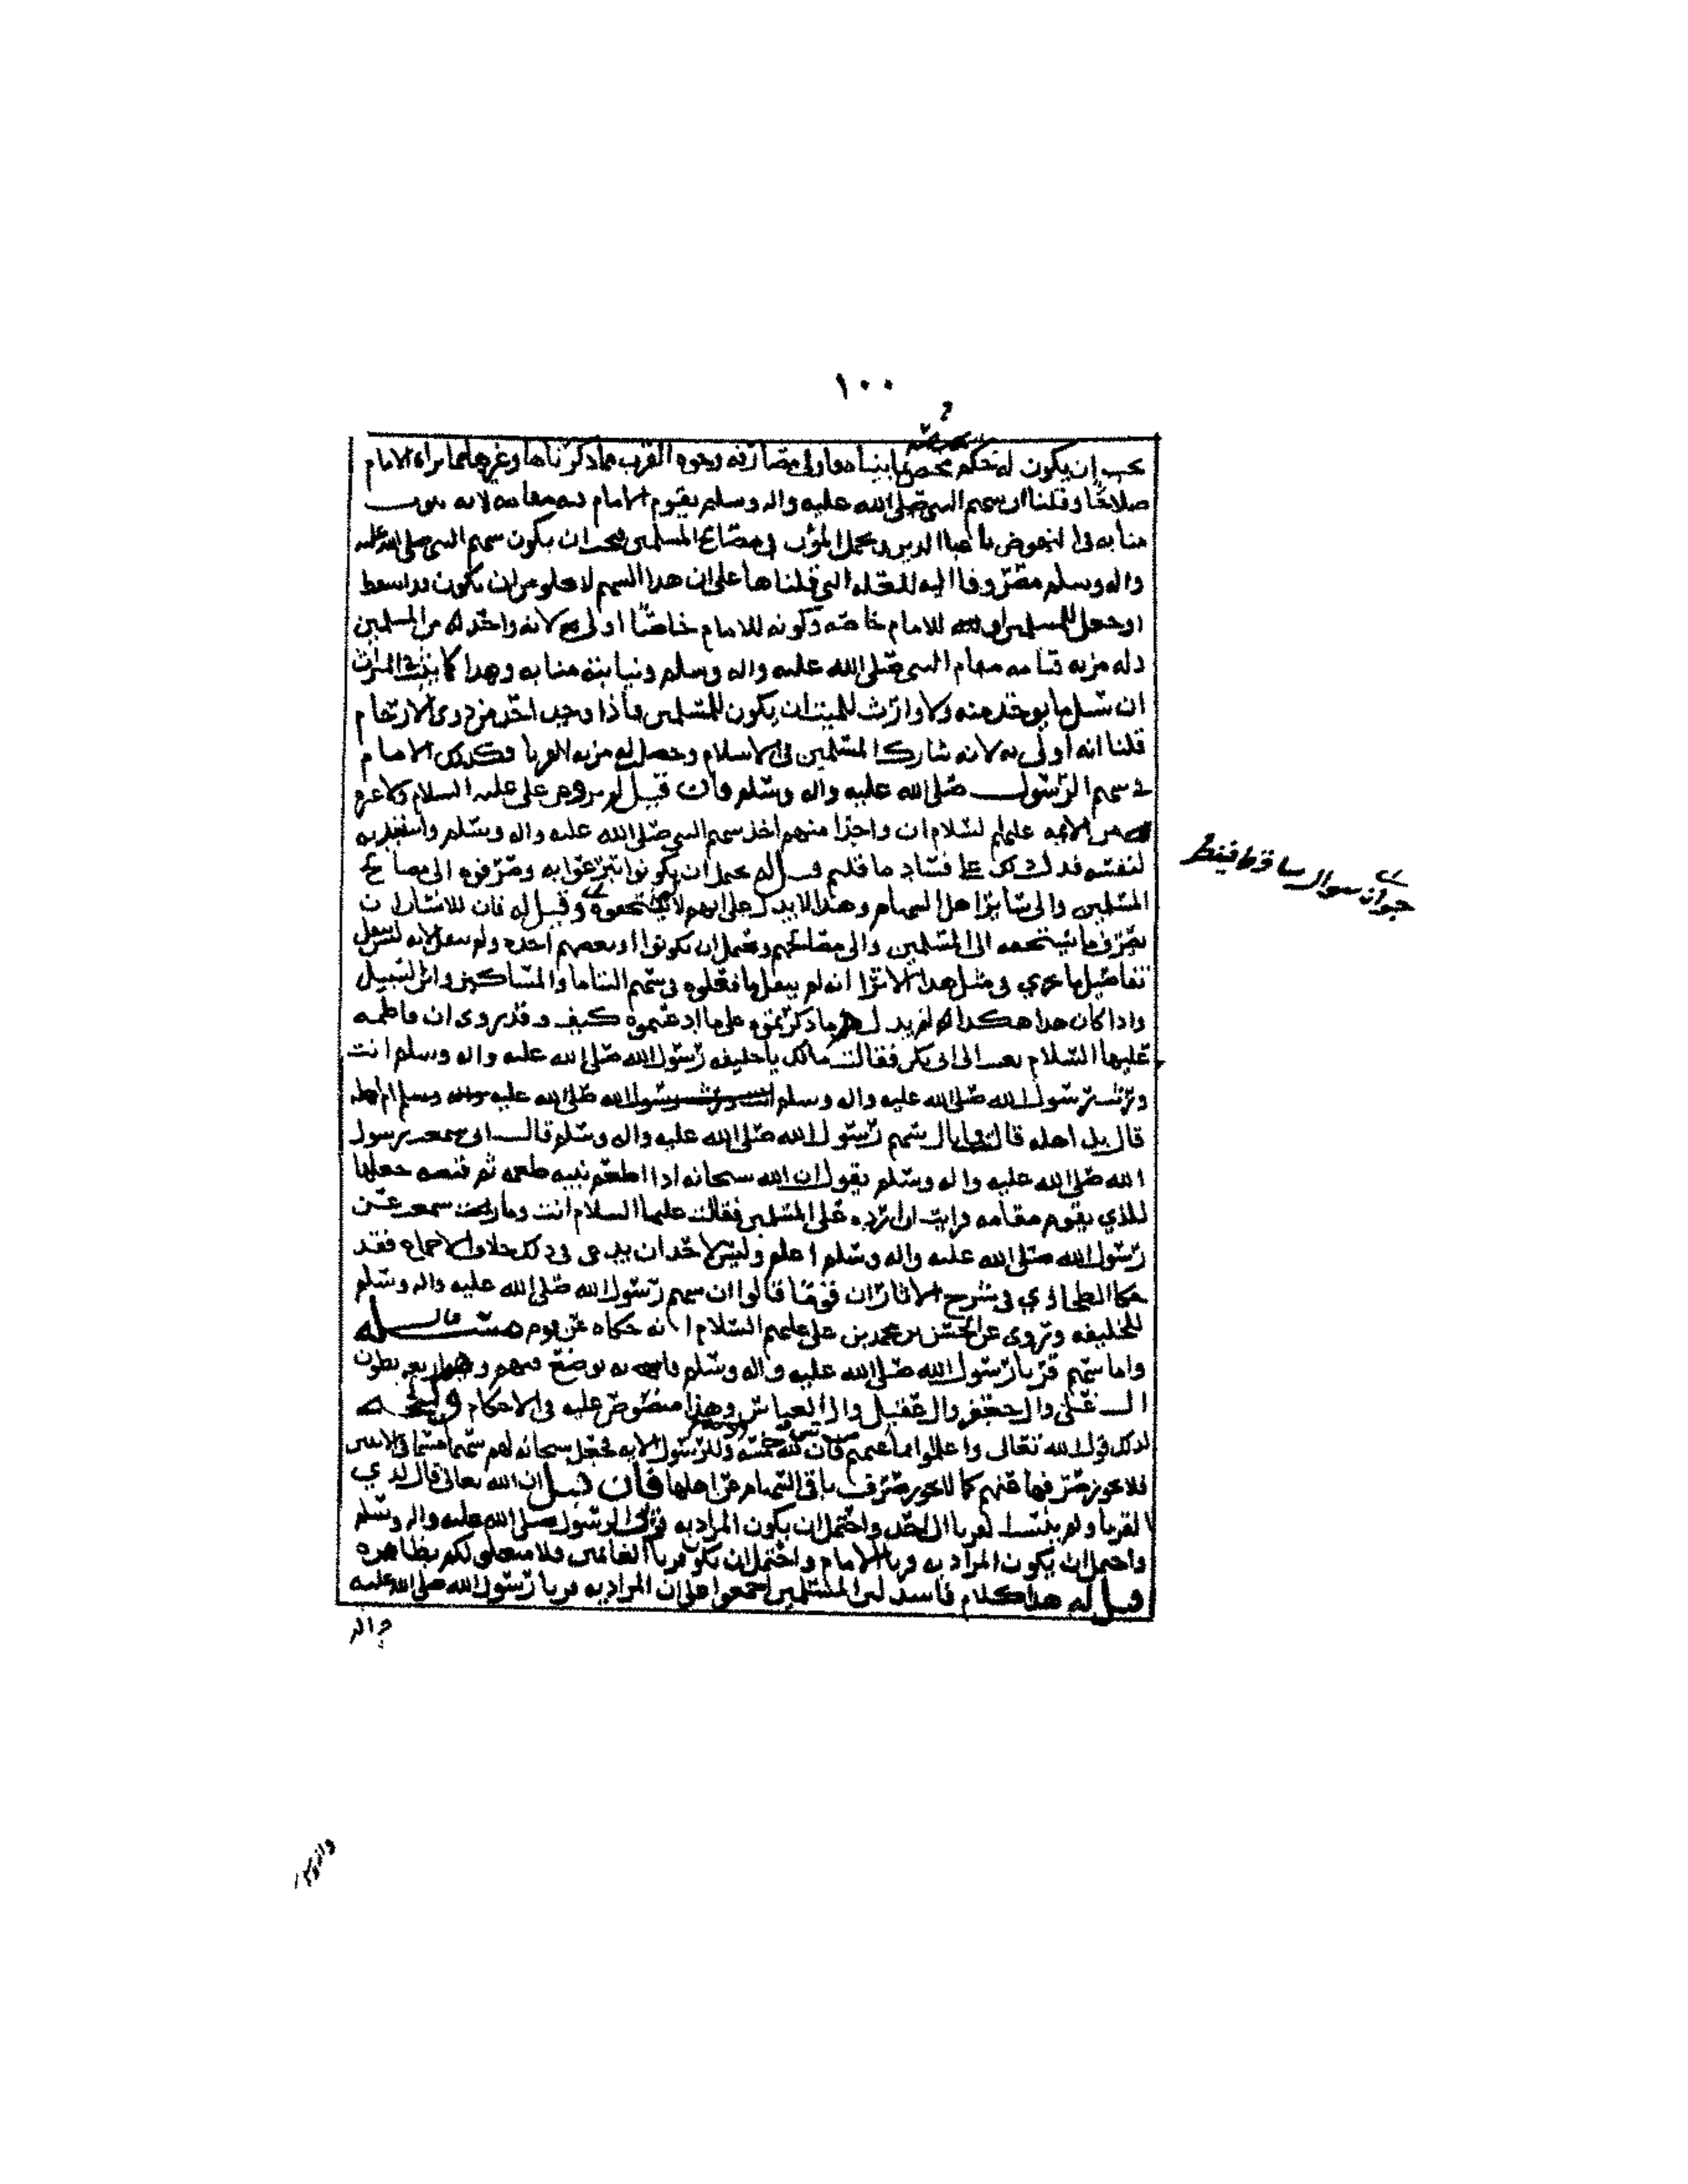 ١٠٠
يجب ان يكون له تحكم وجوه القرب مما ذكرناها وغيرها مما يراه الامام
صلاحا وقلنا ان سهم النبي صلى الله عليه واله وسلم يقوم الامام فيه مقامه لانه ينوب
منابه في النهوض باعبا الدين وتحمل المؤن في مصالح المسلمين فيجب ان يكون سهم النبي صلى الله عليه
واله وسلم مصروفا اليه للعله التي قلناها على ان هذا السهم لا يخلو من ان يكون اسقط
او جعل للمسلمين او للامام خاصه وكونه للامام خاصا اولى لانه واحد من المسلمين
وله مزيه قيامه مقام النبي صلى الله عليه واله وسلم ونيابته منابه وهذا كما
ان سبيل ما يوخذ منه ولا وارث للميت ان يكون للمسلمين فاذا وجد احد من ذوي الارحام
قلنا انه اولى به لانه شارك المسلمين في الاسلام وحصل له مزيه القربا وكذلك الامام
في سهم الرسول صلى الله عليه واله وسلم فان قيل لم يرو عن علي عليه السلام ولا غيره
من الايمه عليهم السلام ان واحدا منهم اخذ سهم النبي صلى الله عليه واله وسلم واستبد به
لنفسه فدل ذلك على فساد ما قلتم قيل له يحمل ان يكونوا تبرعوا به وصرفوه الى مصالح
المسلمين والى سائر اهل السهام وهذا لا يدل على انهم لا يستحقوه وقيل له فان للانسان ان
يصرف ما يستحقه الى المسلمين والى مصالحهم ويحمل ان يكونوا او بعضهم اخذه ولم ينقل لانه ليس ينقل
تفاصيل ما جرى في مثل هذا الا ترا انه لم ينقل ما فعلوه في سهم اليتاما والمساكين وابن السبيل
واذا كان هذا هكذا لم يدل ما ذكرتموه على ما ادعيتموه كيف وقد روي ان فاطمه
عليها السلام بعثت الى ابي بكر فقالت مالك يا خليفه رسول الله صلى الله عليه واله وسلم انت
ورثت رسول الله صلى الله عليه واله وسلم ام اهله
قال بل اهله قالت فما بال سهم رسول الله صلى الله عليه واله وسلم قال اني سمعت رسول
الله صلى الله عليه واله وسلم يقول ان الله سبحانه اذا اطعم نبيه طعمه ثم قبضه جعلها
للذي يقوم مقامه فرايت ان ارده على المسلمين فقالت عليها السلام انت وما سمعت من
رسول الله صلى الله عليه واله وسلم اعلم وليس لاحد ان يدعي في ذلك خلاف الاجماع فقد
حكا الطحاوي في شرح الاثار ان قوما قالوا ان سهم رسول الله صلى الله عليه واله وسلم
للخليفه وروي عن الحسن بن محمد بن علي عليهم السلام انه حكاه عن قوم مسئله قال
واما سهم قربا رسول الله صلى الله عليه واله وسلم فانه يوضع فيهم وهم اربعه بطون
ال علي وال جعفر وال عقيل وال العباس وهذا منصوص عليه في الاحكام
لذلك قول الله تعالى واعلموا انما غنمتم من شي فان لله خمسه وللرسول الايه فجعل سبحانه لهم سهما
فلا يجوز صرفها عنهم كما لا يجوز صرف باقي السهام عن اهلها فان قيل ان الله تعالى قال لذي
القربا ولم ينسب القربا الى احد واحتمل ان يكون المراد به قربا الرسول صلى الله عليه واله وسلم
واحتمل ان يكون المراد به قربا الامام واحتمل ان يكون قربا الغانمين فلا متعلق لكم بظاهره
قيل له هذا كلام فاسد لان المسلمين اجمعوا على ان المراد به قربا رسول الله صلى الله عليه
واله
جواب سوال ساقط فينظر